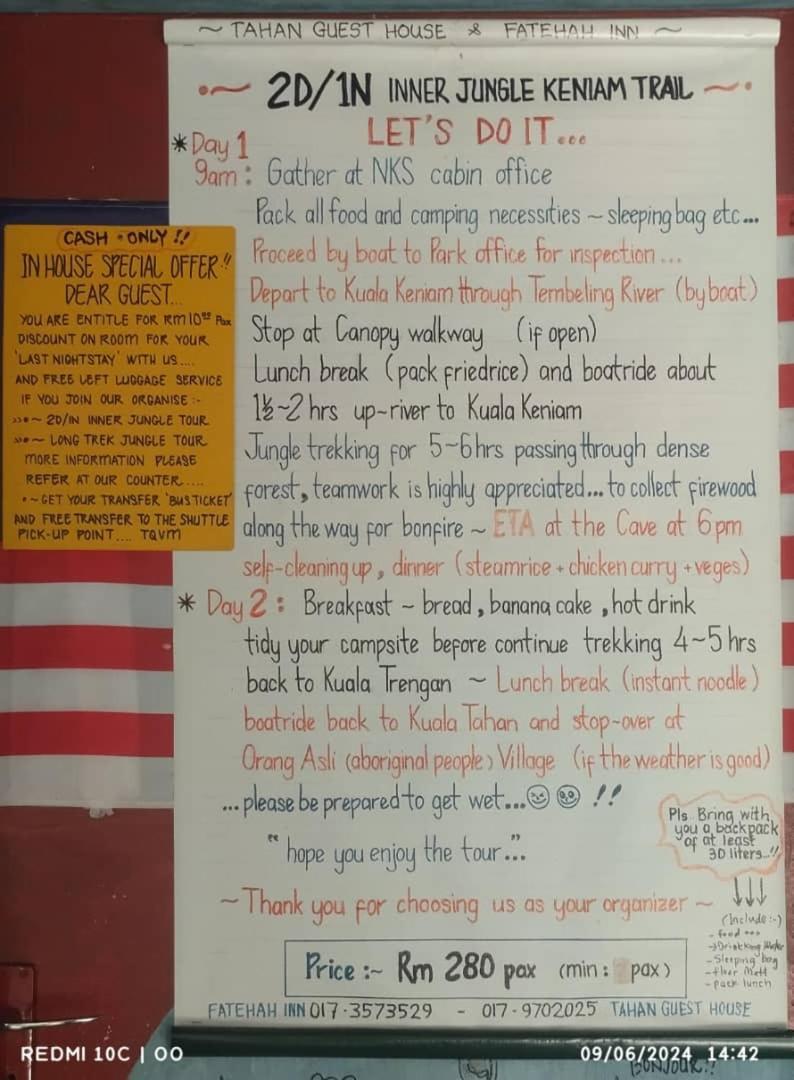 ~ TAHAN GUEST HOUSE & FATEHAH INN ~
2D/1N INNER JUNGLE KENIAM TRAIL
LET'S DO IT...
* Day 1
9am : Gather at NKS cabin office
Pack all food and camping necessities ~ sleeping bag etc...
Proceed by boat to Park office for inspection...
Depart to Kuala Keniam through Tembeling River (by boat)
Stop at Canopy walkway (if open)
Lunch break (pack friedrice) and boatride about
1½~2 hrs up-river to Kuala Keniam
Jungle trekking for 5~6hrs passing through dense
forest, teamwork is highly appreciated... to collect firewood
along the way for bonfire ~ ETA at the Cave at 6pm
self-cleaning up, dinner (steamrice + chicken curry + veges)
* Day 2 : Breakfast ~ bread, banana cake, hot drink
tidy your campsite before continue trekking 4~5 hrs
back to Kuala Trengan ~ Lunch break (instant noodle)
boatride back to Kuala Tahan and stop-over at
Orang Asli (aboriginal people) Village (if the weather is good)
...please be prepared to get wet... !!
"hope you enjoy the tour..."
~ Thank you for choosing us as your organizer ~
Price :~ Rm 280 pax (min : pax)
FATEHAH INN 017-3573529 - 017-9702025 TAHAN GUEST HOUSE
CASH ONLY !!
IN HOUSE SPECIAL OFFER !!
DEAR GUEST...
YOU ARE ENTITLE FOR RM10 Pax
DISCOUNT ON ROOM FOR YOUR
'LAST NIGHTSTAY' WITH US....
AND FREE LEFT LUGGAGE SERVICE
IF YOU JOIN OUR ORGANISE :-
»•~ 2D/IN INNER JUNGLE TOUR
»•~ LONG TREK JUNGLE TOUR
MORE INFORMATION PLEASE
REFER AT OUR COUNTER....
•~ GET YOUR TRANSFER 'BUS TICKET'
AND FREE TRANSFER TO THE SHUTTLE
PICK-UP POINT.... TQVM
Pls Bring with
you a backpack
of at least
30 liters...!!
(Include :-)
- food
Drinking Water
- Sleeping bag
- floor Matt
- pack lunch
BONJOUR !!
REDMI 10C | OO
09/06/2024 14:42